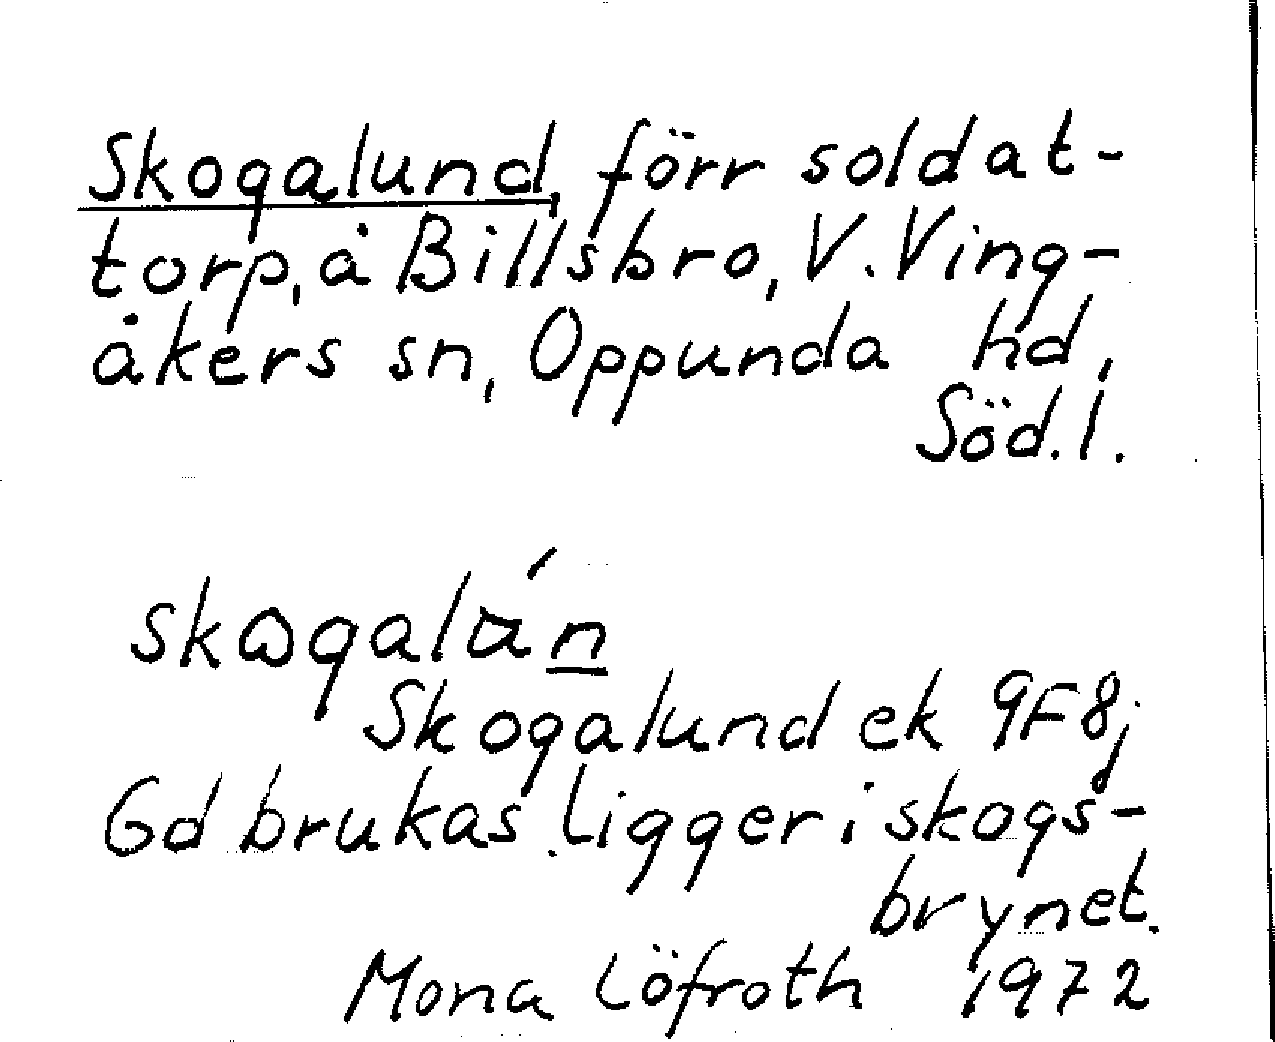 Skogalund, förr soldat-
torp, å Billsbro, V. Ving-
åkers sn, Oppunda hd,
Söd.l.
skωgalán
Skogalund ek 9F8j
Gd brukas. Ligger i skogs-
brynet.
Mona Löfroth 1972